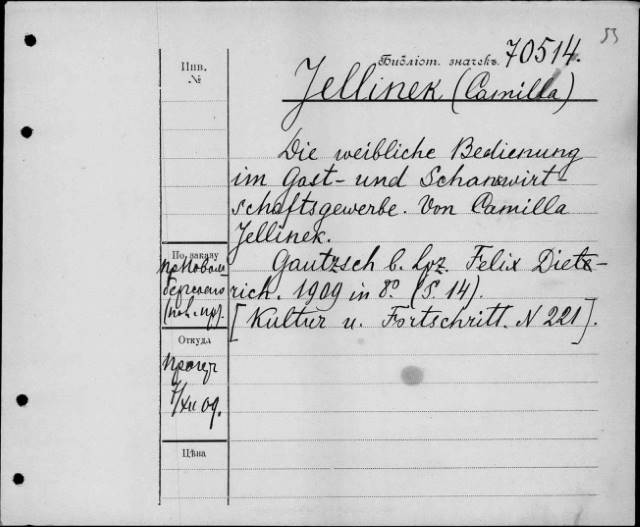 53
Библіот. значекъ 70514.
Инв.
№
Jellinek (Camilla)
Die weibliche Bedienung
im Gast- und Schankwirt-
schaftsgewerbe. Von Camilla
Jellinek.
Gautzsch b. Lpz. Felix Diet-
rich. 1909 in 8º. (S. 14).
[Kultur u. Fortschritt. N 221].
По заказу
Откуда
7/XII 09.
Цѣна